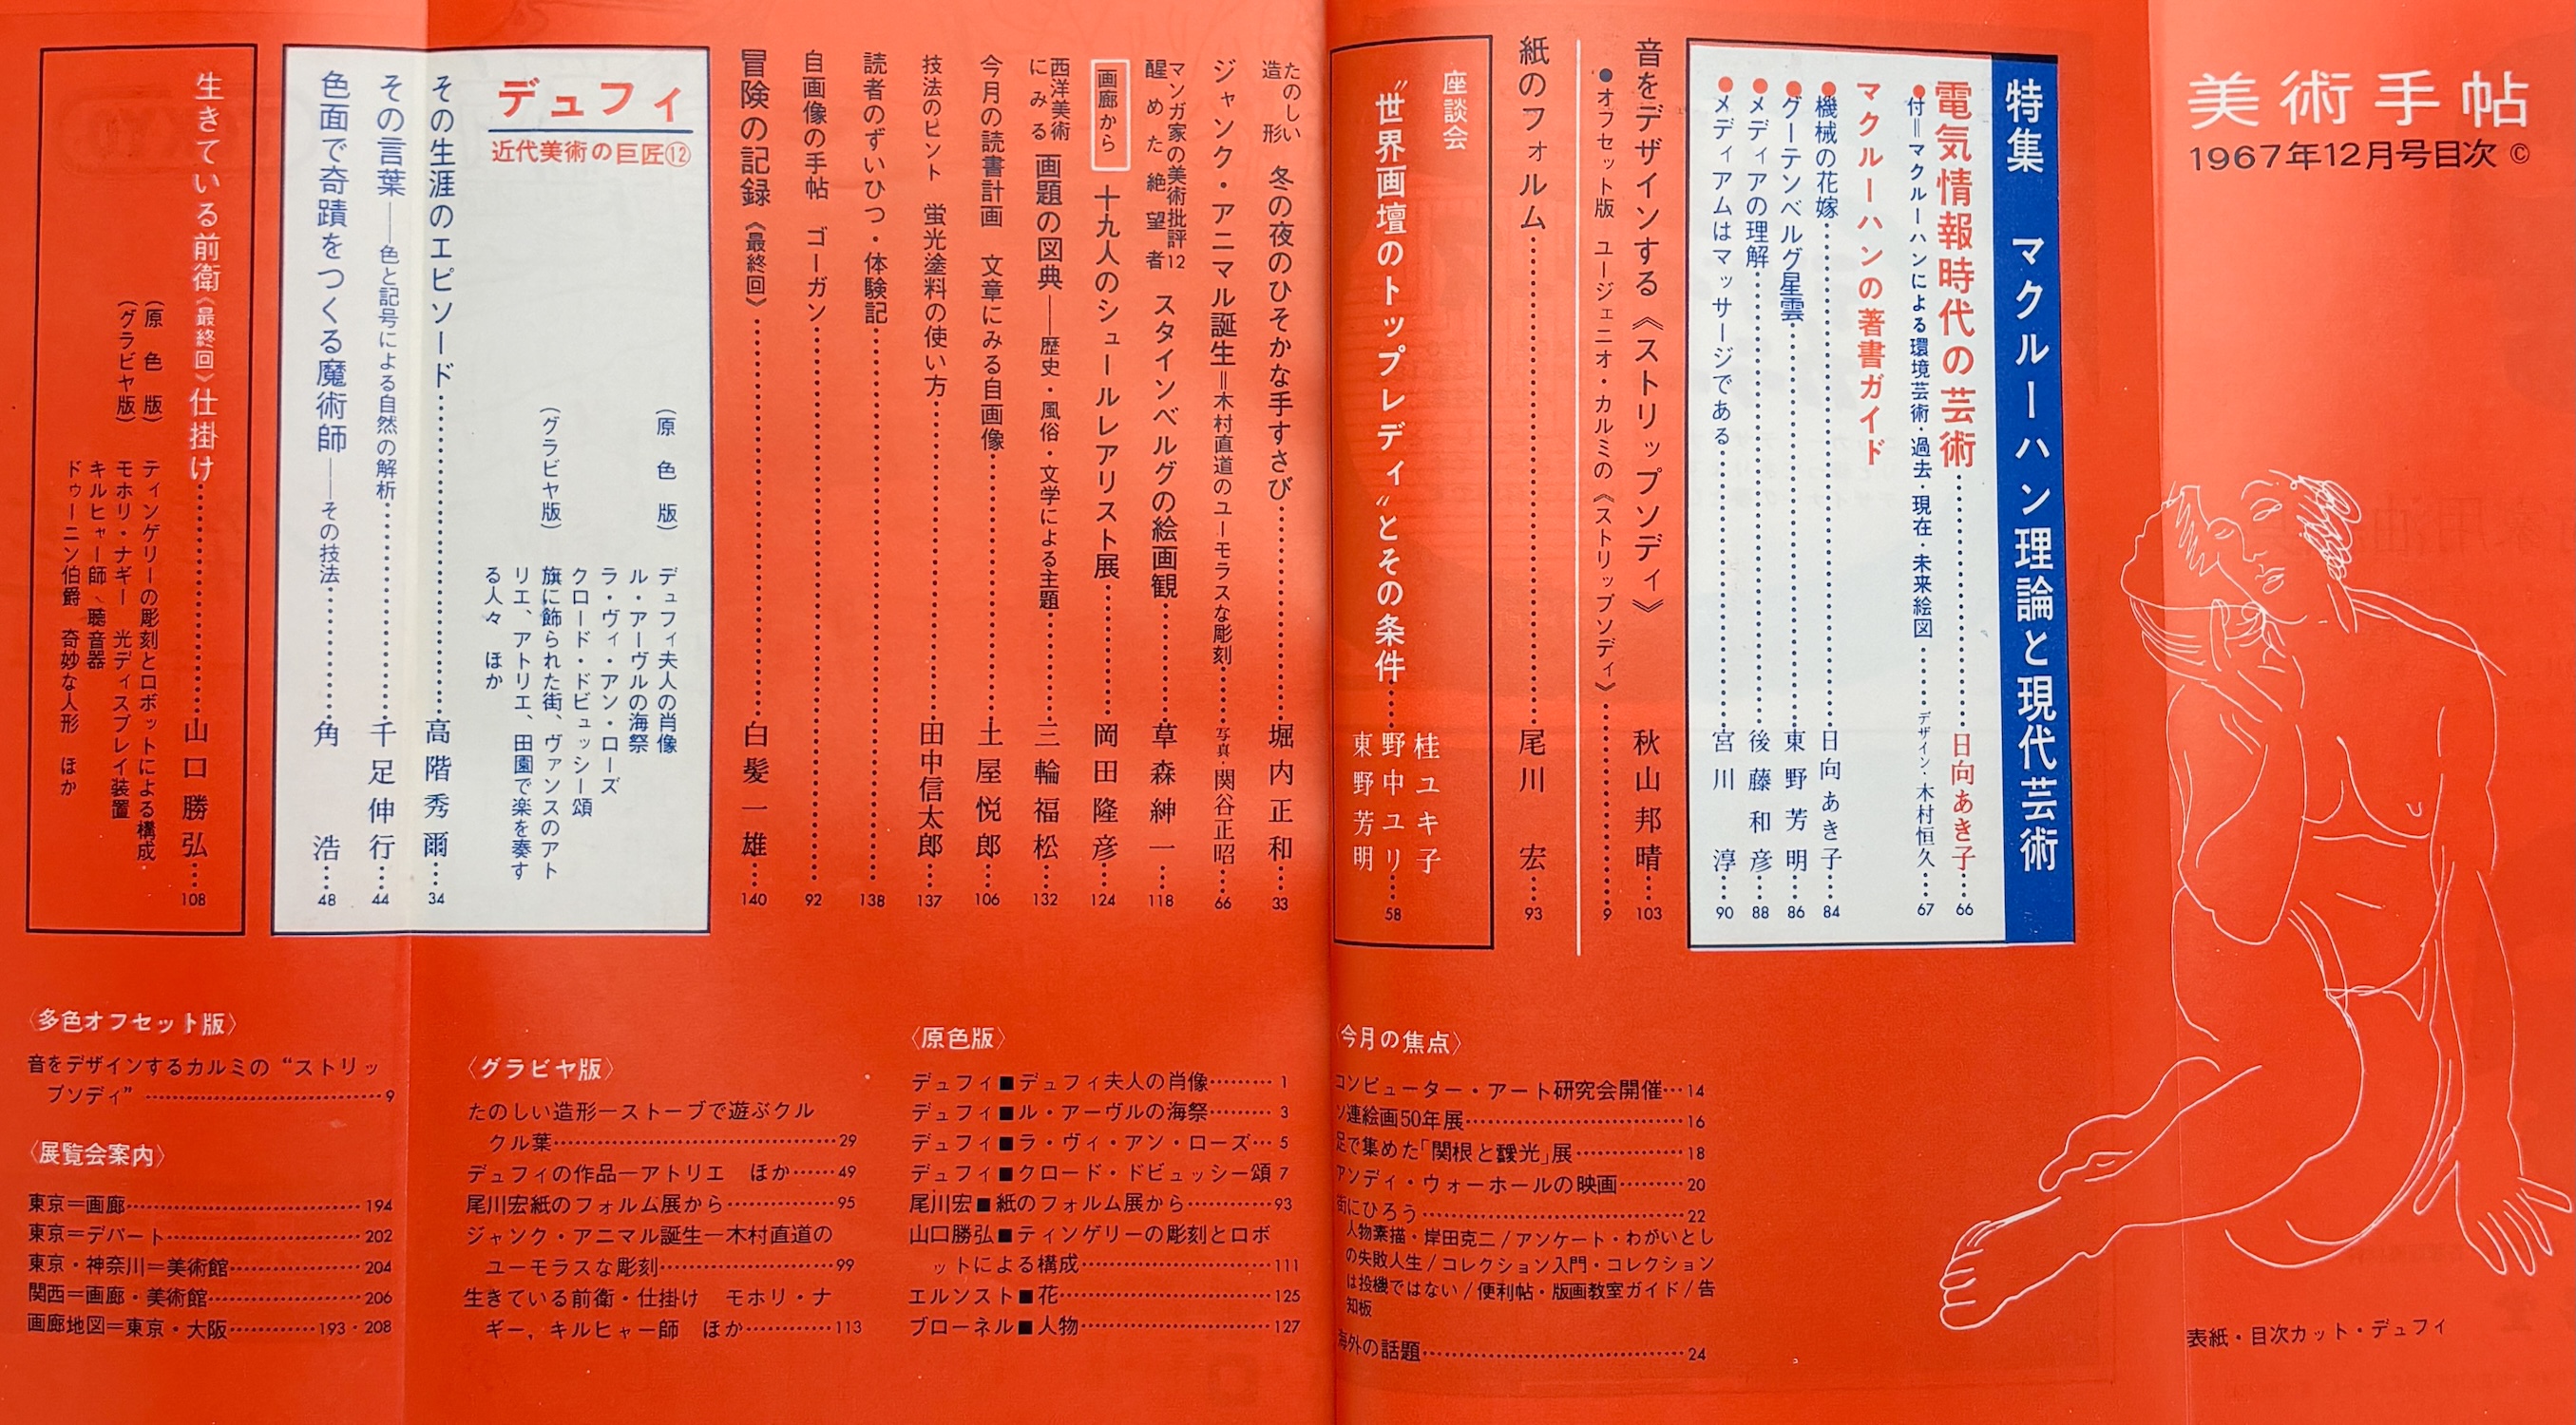 美術手帖
1967年12月号目次 ©
特集 マクルーハン理論と現代芸術
電気情報時代の芸術……日向あき子……66
●付=マクルーハンによる環境芸術・過去・現在・未来絵図……デザイン・木村恒久……67
マクルーハンの著書ガイド
●機械の花嫁……日向あき子……84
●グーテンベルグ星雲……東野芳明……86
●メディアの理解……後藤和彦……88
●メディアムはマッサージである……宮川淳……90
音をデザインする《ストリップソディ》……秋山邦晴……103
●オフセット版 ユージェニオ・カルミの《ストリップソディ》……9
紙のフォルム……尾川宏……93
座談会
〝世界画壇のトップレディ〟とその条件……桂ユキ子 野中ユリ 東野芳明……58
たのしい造形 冬の夜のひそかな手すさび……堀内正和……33
ジャンク・アニマル誕生=木村直道のユーモラスな彫刻……写真・関谷正昭……66
マンガ家の美術批評12 醒めた絶望者 スタインベルグの絵画観……草森紳一……118
画廊から 十九人のシュールレアリスト展……岡田隆彦……124
西洋美術にみる 画題の図典——歴史・風俗・文学による主題……三輪福松……132
今月の読書計画 文章にみる自画像……土屋悦郎……106
技法のヒント 蛍光塗料の使い方……田中信太郎……137
読者のずいひつ・体験記……138
自画像の手帖 ゴーガン……92
冒険の記録《最終回》……白髪一雄……140
デュフィ
近代美術の巨匠⑫
(原色版) デュフィ夫人の肖像
ル・アーヴルの海祭
ラ・ヴィ・アン・ローズ
クロード・ドビュッシー頌
(グラビヤ版) 旗に飾られた街、ヴァンスのアト
リエ、アトリエ、田園で楽を奏す
る人々 ほか
その生涯のエピソード……高階秀爾……34
その言葉——色と記号による自然の解析……千足伸行……44
色面で奇蹟をつくる魔術師——その技法……角浩……48
生きている前衛《最終回》仕掛け……山口勝弘……108
(原色版) ティンゲリーの彫刻とロボットによる構成・
(グラビヤ版) モホリ・ナギー 光ディスプレイ装置
キルヒャー師、聴音器
ドゥーニン伯爵 奇妙な人形 ほか
〈今月の焦点〉
コンピューター・アート研究会開催…14
ソ連絵画50年展……16
足で集めた「関根と靉光」展……18
アンディ・ウォーホールの映画……20
街にひろう……22
人物素描・岸田克二/アンケート・わがいとし
の失敗人生/コレクション入門・コレクション
は投機ではない/便利帖・版画教室ガイド/告
知板
海外の話題……24
〈原色版〉
デュフィ■デュフィ夫人の肖像……1
デュフィ■ル・アーヴルの海祭……3
デュフィ■ラ・ヴィ・アン・ローズ…5
デュフィ■クロード・ドビュッシー頌 7
尾川宏■紙のフォルム展から……93
山口勝弘■ティンゲリーの彫刻とロボ
ットによる構成……111
エルンスト■花……125
ブローネル■人物……127
〈グラビヤ版〉
たのしい造形—ストーブで遊ぶクル
クル葉……29
デュフィの作品—アトリエ ほか……49
尾川宏紙のフォルム展から……95
ジャンク・アニマル誕生—木村直道の
ユーモラスな彫刻……99
生きている前衛・仕掛け モホリ・ナ
ギー,キルヒャー師 ほか……113
〈多色オフセット版〉
音をデザインするカルミの“ストリッ
プソディ”……9
〈展覧会案内〉
東京=画廊……194
東京=デパート……202
東京・神奈川=美術館……204
関西=画廊・美術館……206
画廊地図=東京・大阪……193・208
表紙・目次カット・デュフィ